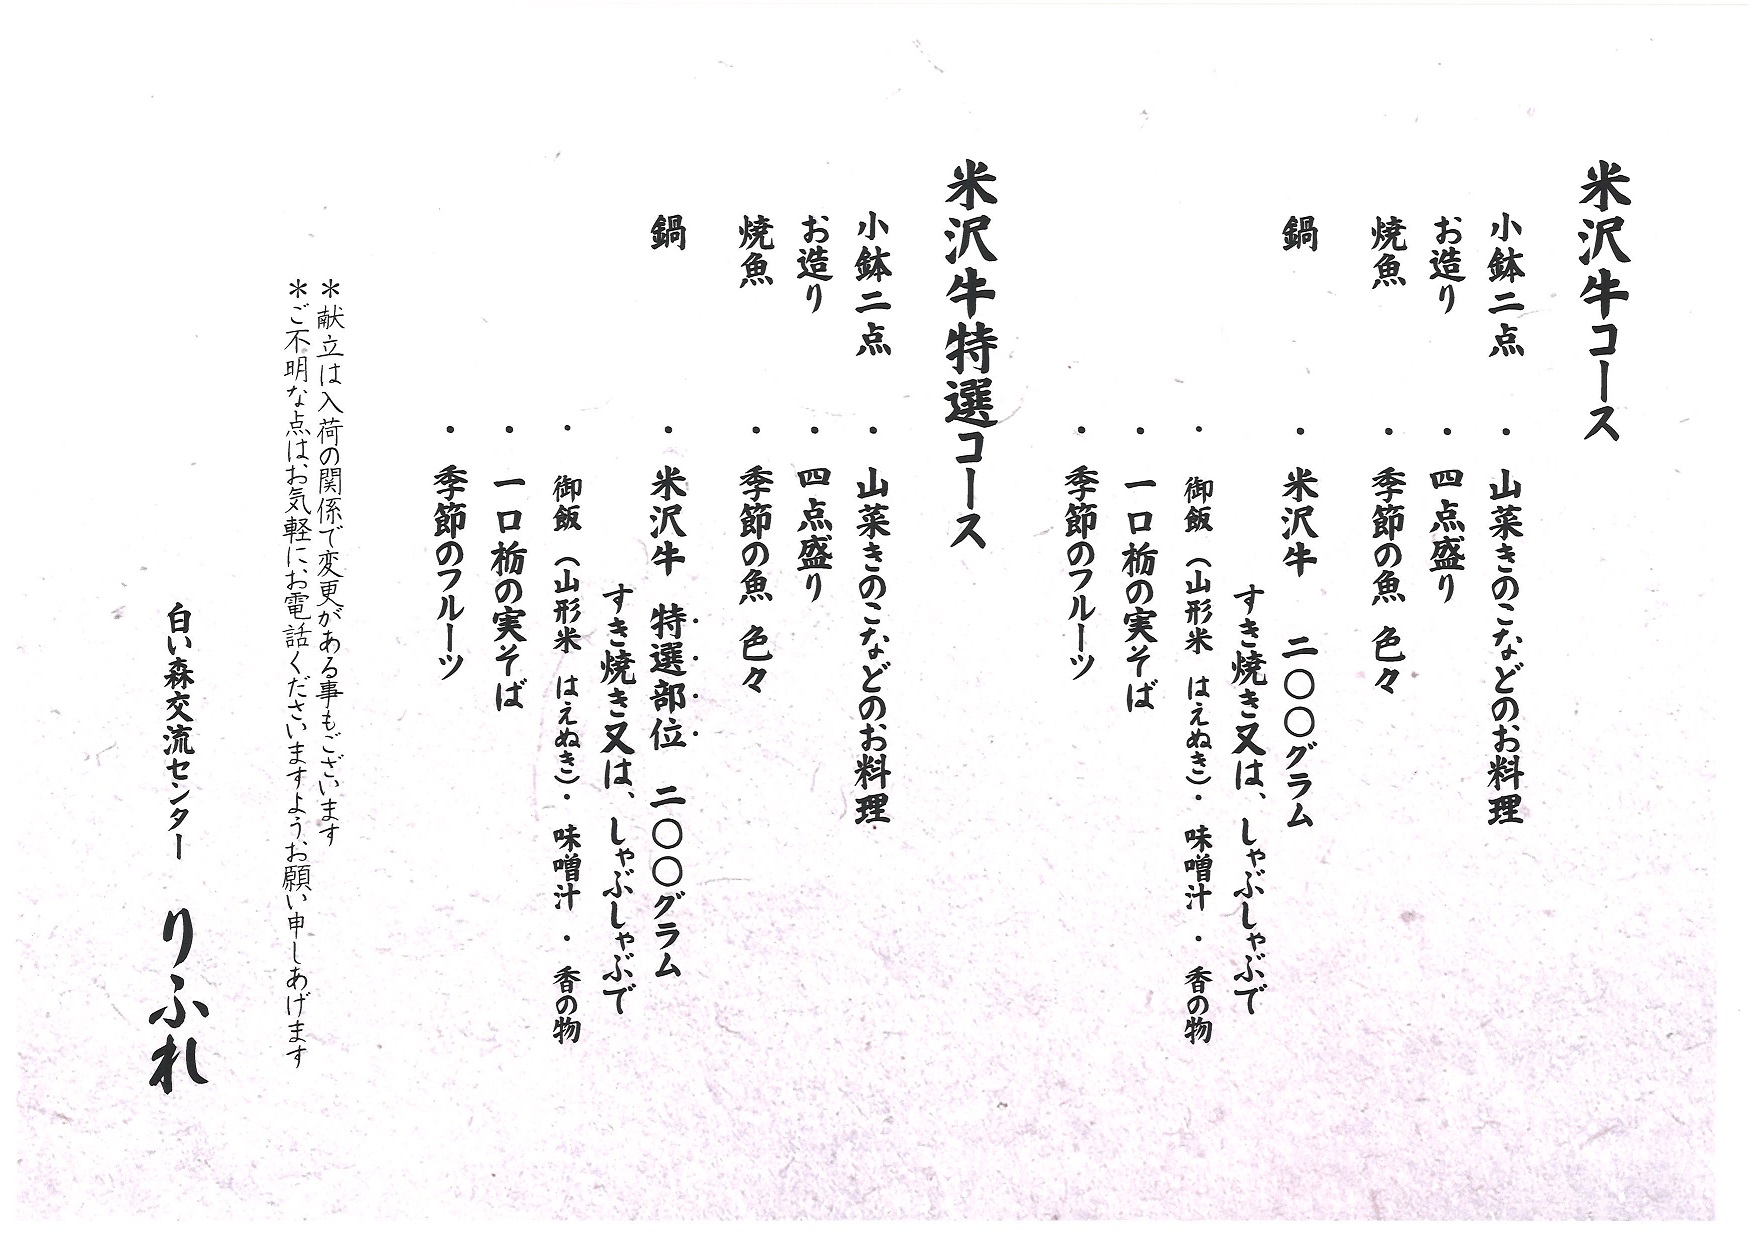 米沢牛コース
小鉢二点 ・ 山菜きのこなどのお料理
お造り ・ 四点盛り
焼魚 ・ 季節の魚 色々
鍋 ・ 米沢牛 二〇〇グラム
すき焼き又は、しゃぶしゃぶで
・ 御飯(山形米 はえぬき)・ 味噌汁 ・ 香の物
・ 一口栃の実そば
・ 季節のフルーツ
米沢牛特選コース
小鉢二点 ・ 山菜きのこなどのお料理
お造り ・ 四点盛り
焼魚 ・ 季節の魚 色々
鍋 ・ 米沢牛 特選部位 二〇〇グラム
すき焼き又は、しゃぶしゃぶで
・ 御飯(山形米 はえぬき)・ 味噌汁 ・ 香の物
・ 一口栃の実そば
・ 季節のフルーツ
＊献立は入荷の関係で変更がある事もございます
＊ご不明な点はお気軽にお電話くださいますようお願い申しあげます
白い森交流センター りふれ